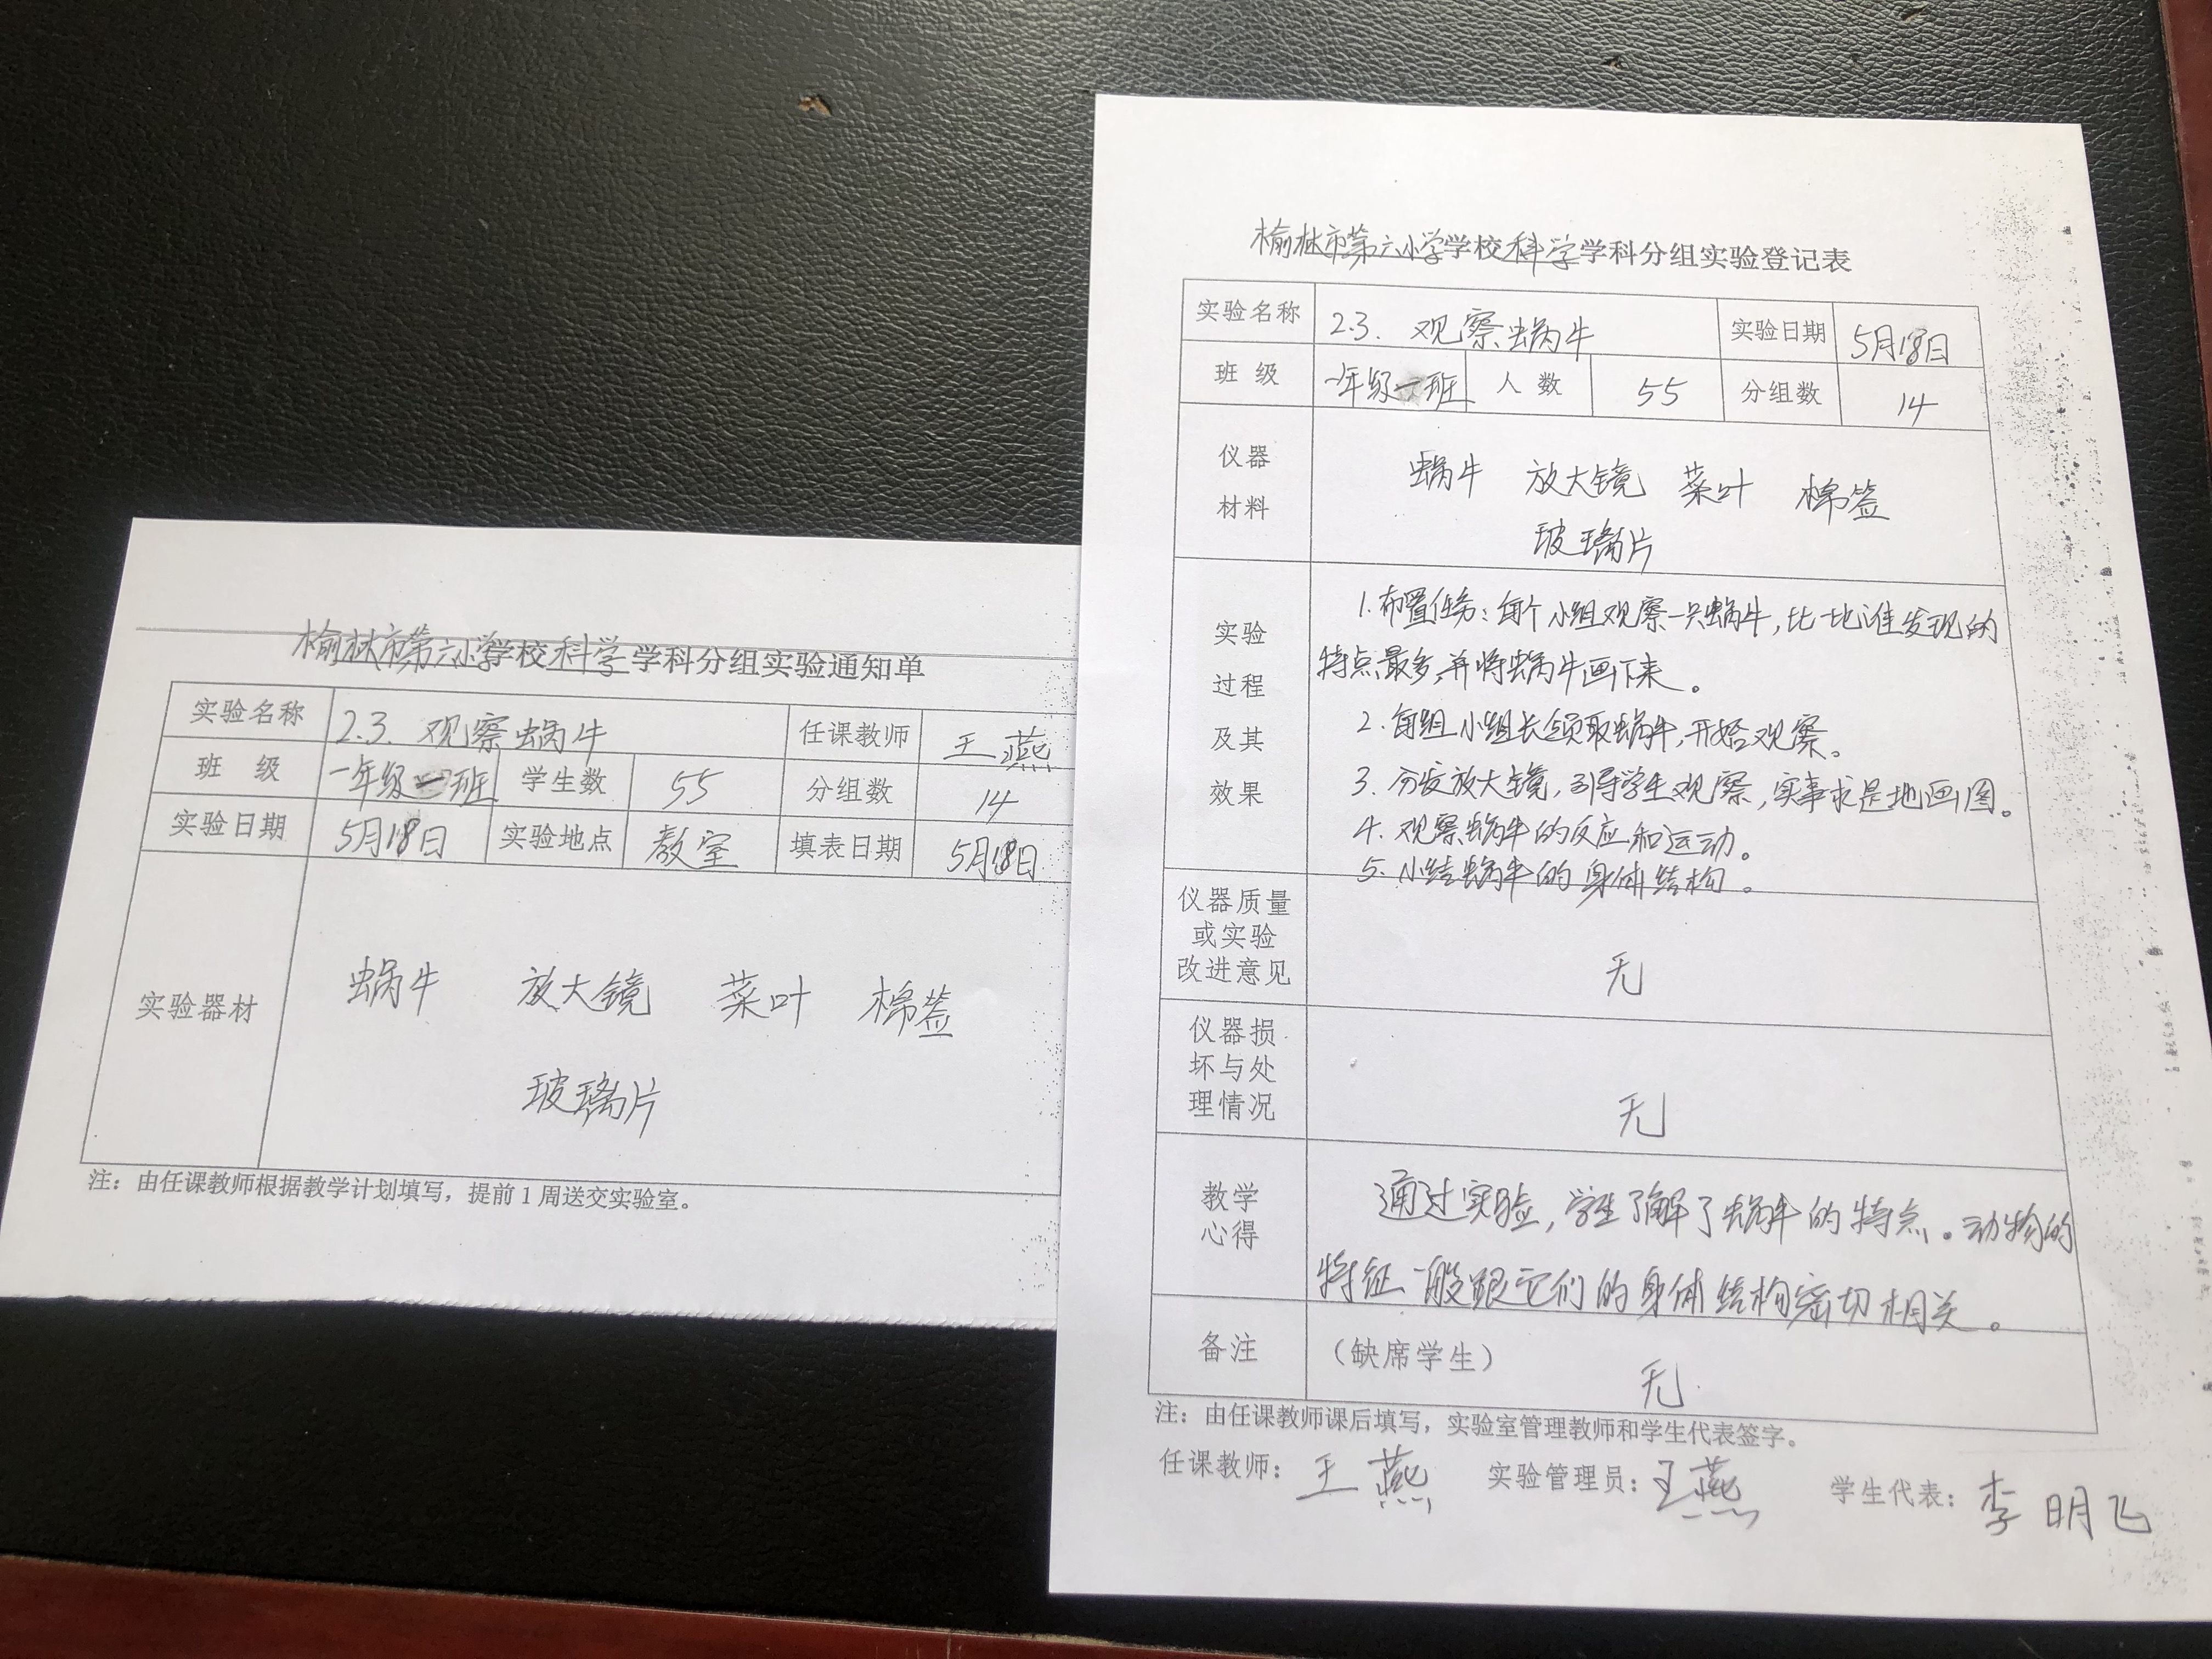 榆林市第六小学学校科学学科分组实验通知单
实验名称 2.3. 观察蜗牛 任课教师 王燕
班 级 一年级一班 学生数 55 分组数 14
实验日期 5月18日 实验地点 教室 填表日期 5月18日
实验器材 蜗牛 放大镜 菜叶 棉签
玻璃片
注：由任课教师根据教学计划填写，提前1周送交实验室。
榆林市第六小学学校科学学科分组实验登记表
实验名称 2.3. 观察蜗牛 实验日期 5月18日
班 级 一年级一班 人 数 55 分组数 14
仪器
材料
蜗牛 放大镜 菜叶 棉签
玻璃片
实验
过程
及其
效果
1.布置任务：每个小组观察一只蜗牛，比一比谁发现的
特点最多，并将蜗牛画下来。
2.每组小组长领取蜗牛，开始观察。
3.分发放大镜，引导学生观察，实事求是地画图。
4.观察蜗牛的反应和运动。
5.小结蜗牛的身体结构。
仪器质量
或实验
改进意见
无
仪器损
坏与处
理情况
无
教学
心得
通过实验，学生了解了蜗牛的特点。动物的
特征一般跟它们的身体结构密切相关。
备注 （缺席学生） 无
注：由任课教师课后填写，实验室管理教师和学生代表签字。
任课教师：王燕 实验管理员：王燕 学生代表：李明飞